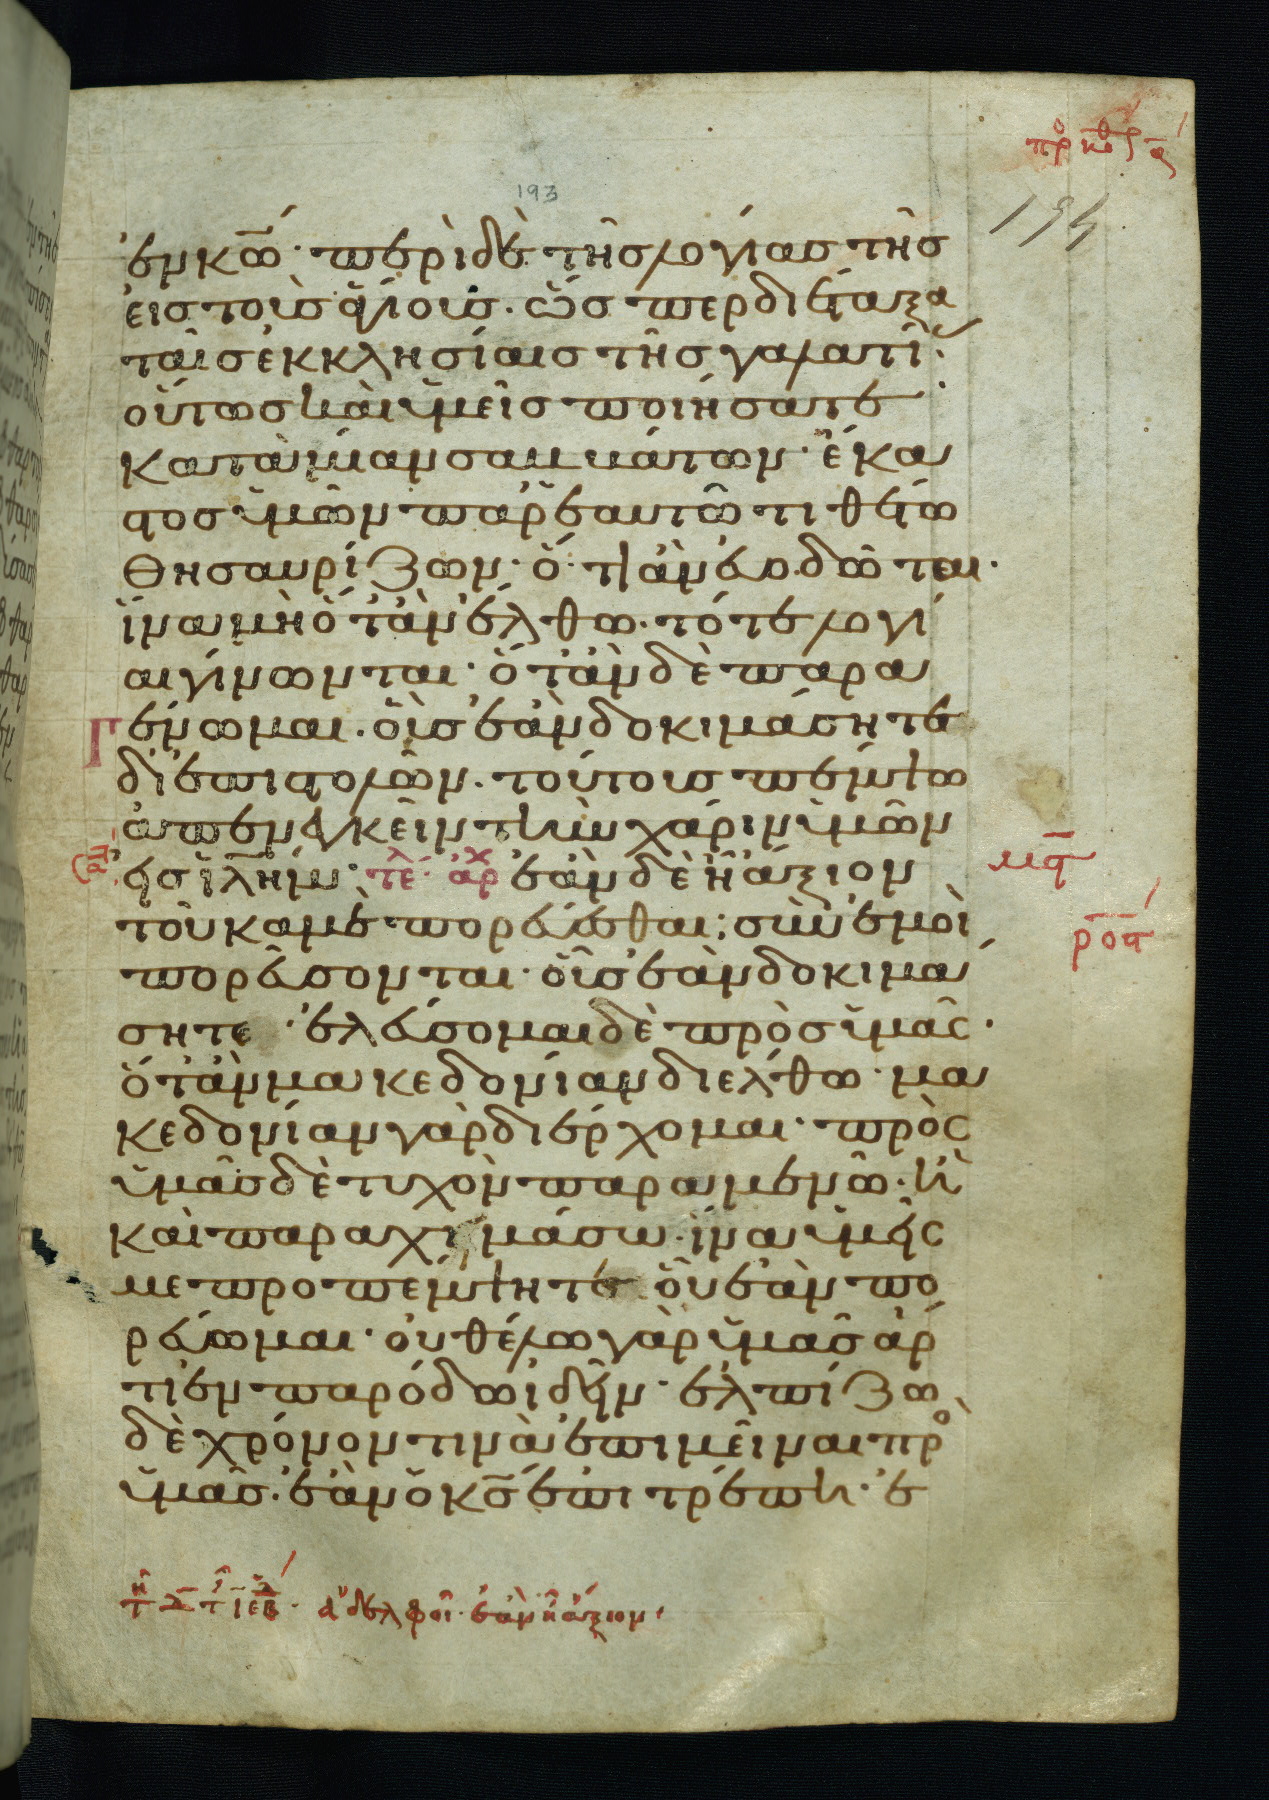 πρ κορ α
193
194
ἐν κω̅· περὶ δὲ τῆς λογίας τῆς
εἰς τοὺς ἁγίους. ὥσπερ διέταξα
ταῖς ἐκκλησίαις τῆς γαλατί
οὕτως καὶ ὑμεῖς ποιήσατε
κατὰ μίαν σαββάτων· ἕκα
στος ὑμῶν παρ' ἑαυτῶ τιθέτω
θησαυρίζων· ὅ τι ἂν εὐοδῶται·
ἵνα μὴ ὅταν ἔλθω. τότε λογί
αι γίνωνται· ὅταν δὲ παρα
γένωμαι. οὓς ἐὰν δοκιμάσητε
δι' ἐπιστολῶν. τούτους πέμψω
ἀπενεγκεῖν τὴν χάριν ὑμῶν
εἰς ἰλῆμ· τε αρχ ἐὰν δὲ ἦ ἄξιον
τοῦ κἀμὲ πορεύεσθαι; σὺν ἐμοὶ
πορεύσονται· οὓς ἐὰν δοκιμά
σητε· ἐλεύσομαι δὲ πρὸς ὑμᾶς·
ὅταν μακεδονίαν διέλθω· μα
κεδονίαν γὰρ διέρχομαι· πρὸς
ὑμᾶς δὲ τυχὸν παραμενῶ. ἢ
καὶ παραχιμάσω· ἵνα ὑμεῖς
με προπέμψητε οὗ ἐὰν πο
ρεύωμαι· οὐ θέλω γὰρ ὑμᾶς ἄρ
τι ἐν παρόδω ἰδεῖν· ἐλπίζω
δὲ χρόνον τινὰ ἐπιμεῖναι πρ
ὑμᾶς. ἐὰν ὁ κς̅ ἐπιτρέπη· ἐ
ἀδελφοί· ἐὰν ἦ ἄξιον